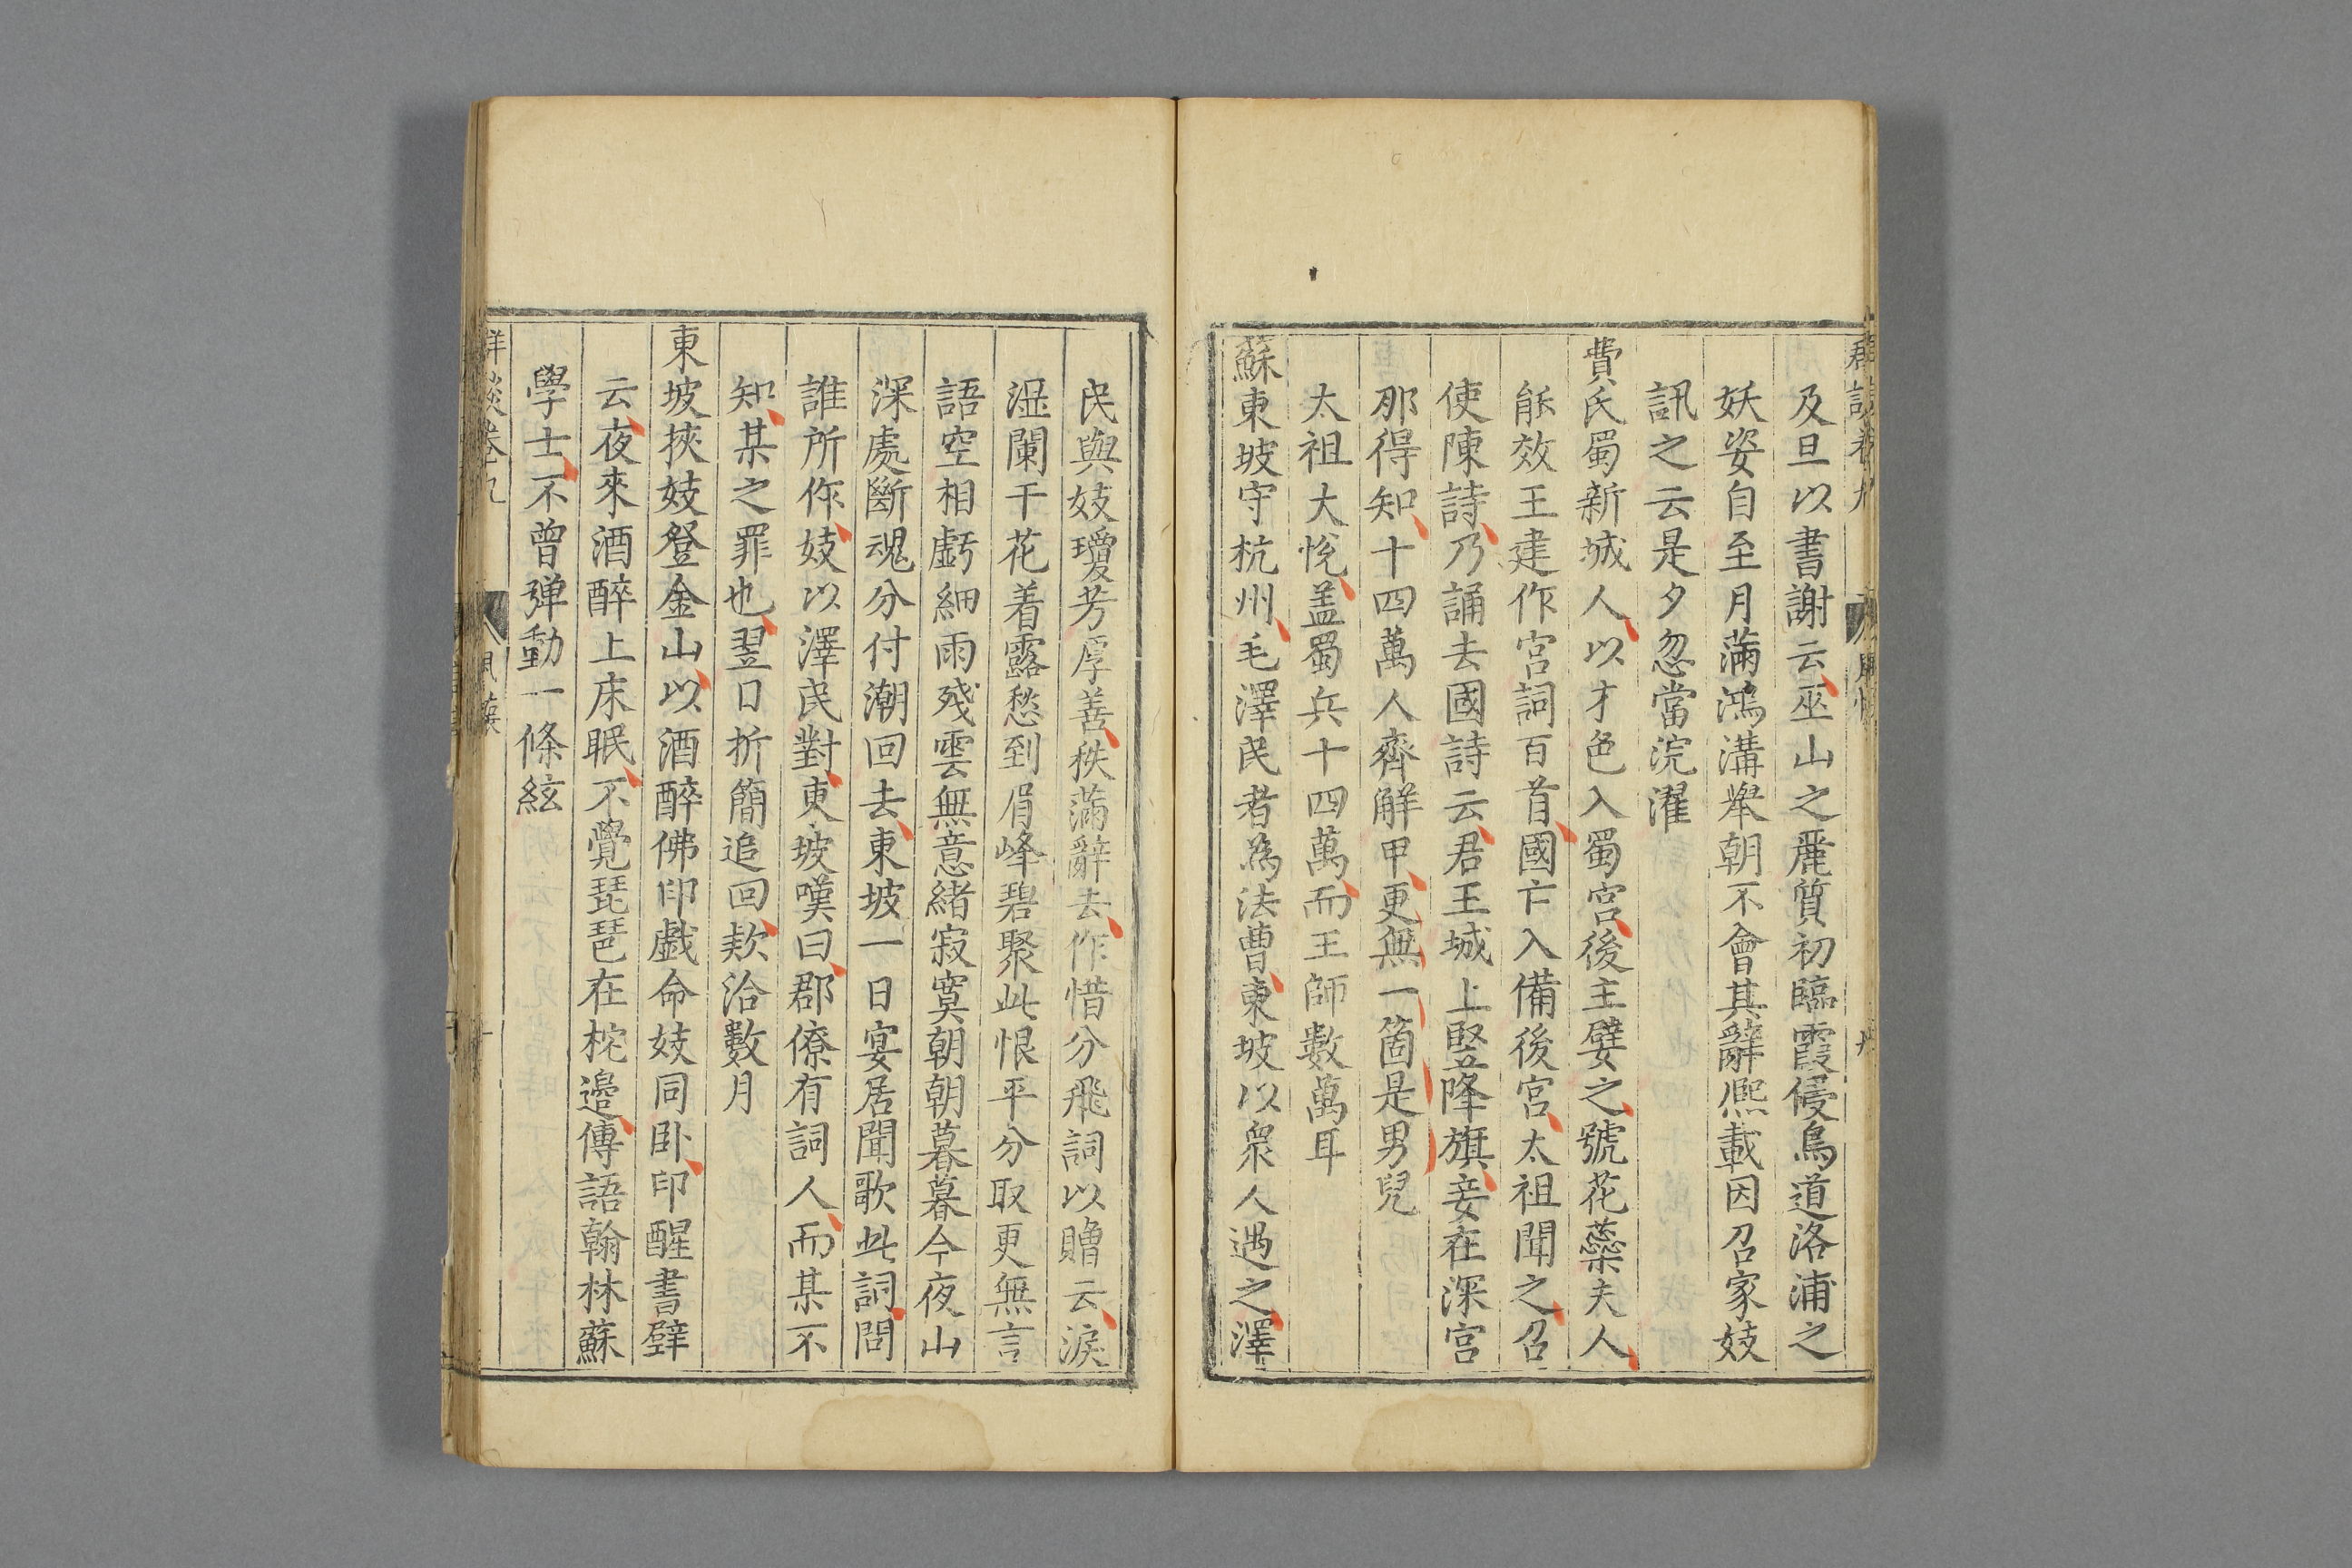 及旦以書謝云巫山之麗質初臨霞侵鳥道洛浦之
妖姿自至月滿鴻溝舉朝不會其辭熈載因召家妓
訊之云是夕忽當浣濯
費氏蜀新城人以才色入蜀宮後主嬖之號花蘂夫人
能效王建作宮詞百首國亡入備後宮太祖聞之召
使陳詩乃誦去國詩云君王城上竪降旗妾在深宮
那得知十四萬人齊解甲更無一箇是男兒
太祖大悅盖蜀兵十四萬而王師數萬耳
蘇東坡守杭州毛澤民者為法曹東坡以衆人遇之澤
民與妓瓊芳厚善秩滿辭去作惜分飛詞以贈云淚
湿闌干花着露愁到眉峰碧聚此恨平分取更無言
語空相戱細雨殘雲無意緒寂寞朝朝暮暮今夜山
深處斷魂分付潮回去東坡一日宴居聞歌此詞問
誰所作妓以澤民對東坡嘆曰郡僚有詞人而某不
知某之罪也翌日折簡追回欵洽數月
東坡挾妓登金山以酒醉佛印戱命妓同卧印醒書壁
云夜來酒醉上床眠不覺琵琶在枕邊傳語翰林蘇
學士不曾弹動一條絃